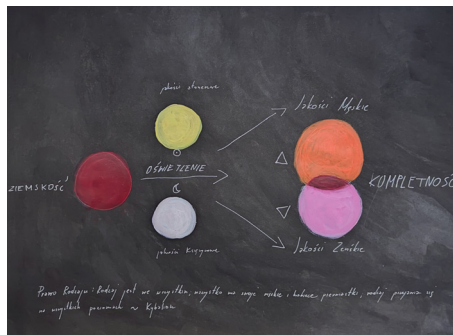 jakości słoneczne
Jakości Męskie
OŚWIETLENIE
ZIEMSKOŚĆ
KOMPLETNOŚĆ
jakości Księżycowe
Jakości Żeńskie
Prawo Rodzaju: Rodzaj jest we wszystkim, wszystko ma swoje męskie i żeńskie pierwiastki; rodzaj przejawia się
na wszystkich poziomach ~ Kybalion